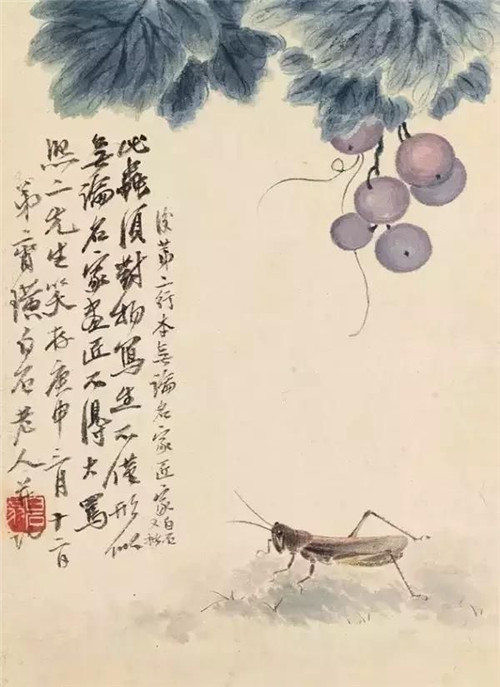 此蟲須對物寫生不僅形似
無論名家畫匠不得大罵
熙二先生笑存庚申三月十二日
弟齊璜白石老人并記
後第二行本無論名家匠家白石又
白石翁